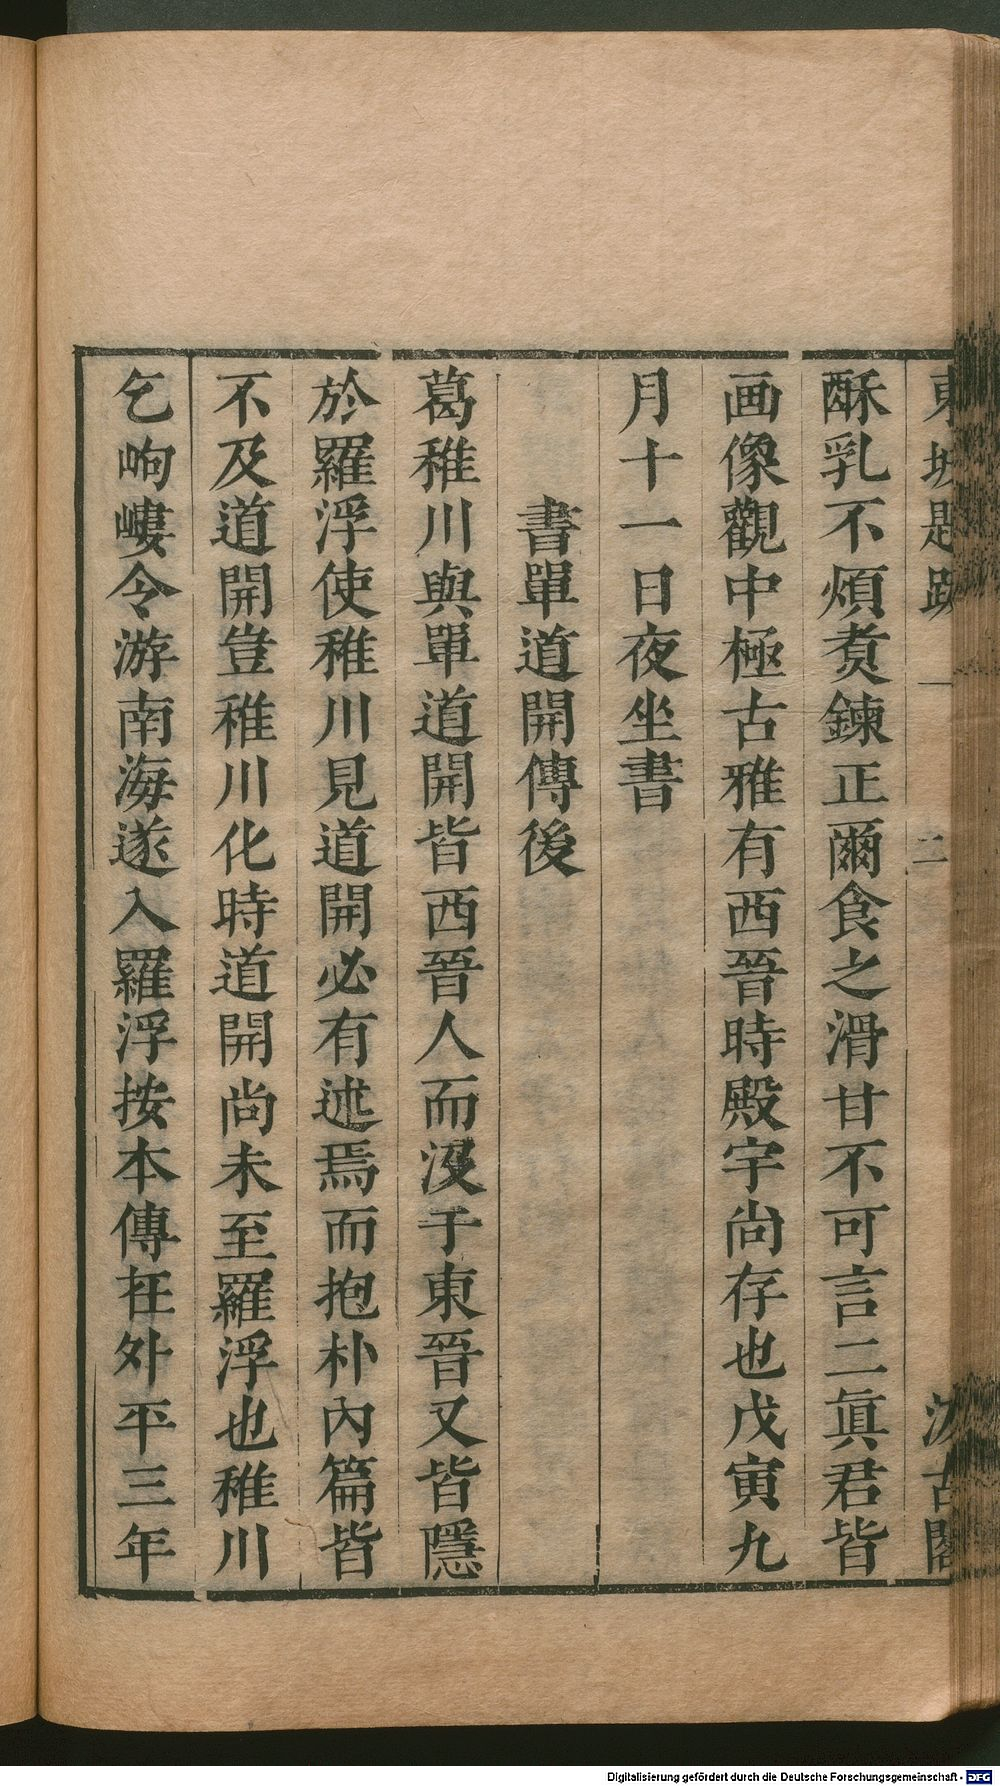 東坡題跋 一 二 汲古閣
酥乳不煩煑鍊正爾食之滑甘不可言二眞君皆
画像觀中極古雅有西晉時殿宇尚存也戊寅九
月十一日夜坐書
書單道開傳後
葛稚川與單道開皆西晉人而沒于東晉又皆隱
於羅浮使稚川見道開必有述焉而抱朴內篇皆
不及道開豈稚川化時道開尚未至羅浮也稚川
乞岣嶁令游南海遂入羅浮按本傳在外平三年
Digitalisierung gefördert durch die Deutsche Forschungsgemeinschaft - DFG